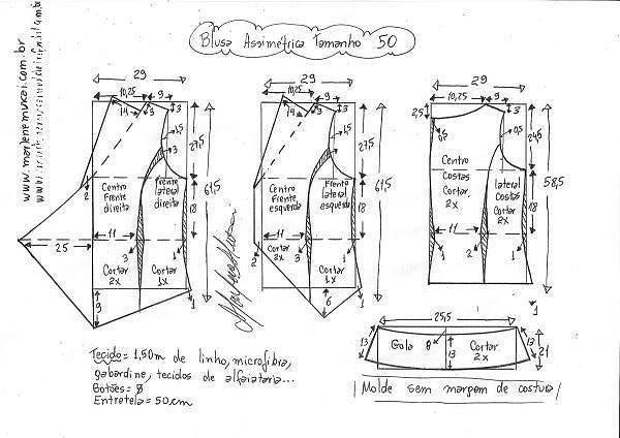 Blusa Assimétrica Tamanho 50
www.marlenemukai.com.br
29
10,25
9
14
3
3
1,5
3
27,5
61,5
2
Centro
Frente
direita
Frente
lateral
direita
18
25
11
3
1
Cortar
2x
Cortar
1x
9
1
29
10,25
9
14
3
3
1,5
3
27,5
61,5
Centro
Frente
esquerda
Frente
lateral
esquerda
18
11
2
3
1
Cortar
2x
Cortar
1x
6
1
29
10,25
9
2,5
3
0,5
0,5
24,5
58,5
Centro
Costas
Cortar
2x
lateral
Costas
Cortar
2x
18
11
1
2
1
1
25,5
13
Gola
8
13
Cortar
2x
13
21
Tecido = 1,50m de linho, microfibra,
gabardine, tecidos de alfaiataria...
Botões = 8
Entretela = 50cm
Molde sem margem de costura